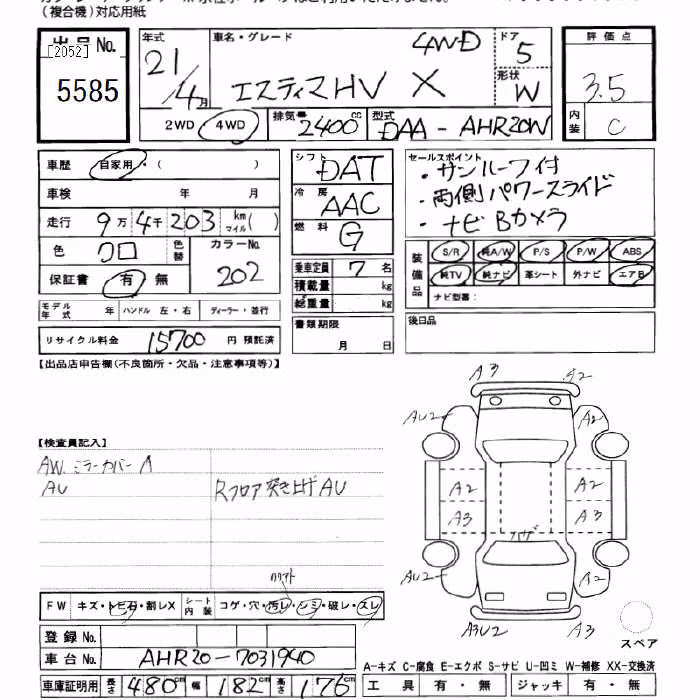 (複合機)対応用紙
出品No.
[2052]
5585
年式 21/4月
車名・グレード 4WD
エスティマHV X
ドア 5
形状 W
2WD 4WD 排気量 2400cc 型式 DAA-AHR20W
評価点
3.5
内装 C
車歴 自家用・( )
車検 年 月
走行 9万4千203 km マイル( )
色 クロ 色替 カラーNo. 202
保証書 有 無
モデル年式 年 ハンドル 左・右 ディーラー・並行
リサイクル料金 15700 円 預託済
シフト DAT
冷房 AAC
燃料 G
乗車定員 7 名
積載量 kg
総重量 kg
書類期限
月 日
セールスポイント
・サンルーフ付
・両側パワースライド
・ナビBカメラ
装備品 S/R 純A/W P/S P/W ABS
純TV 純ナビ 革シート 外ナビ エアB
ナビ型番：
後日品
【出品店申告欄(不良箇所・欠品・注意事項等)】
【検査員記入】
AW ミラーカバー A
AU Rフロア突き上げAU
A3 A2
AU2 A2
A2 A2
A3 A3
AU2 A2
AU2 A3
FW キズ・トビ石・割レX シート内装 コゲ・穴・汚レ・シミ・破レ・スレ
登録No.
車台No. AHR20-7031940
車庫証明用 長さ 480cm 幅 182cm 高さ 176cm
スペア
A-キズ C-腐食 E-エクボ S-サビ U-凹ミ W-補修 XX-交換済
工具 有・無 ジャッキ 有・無